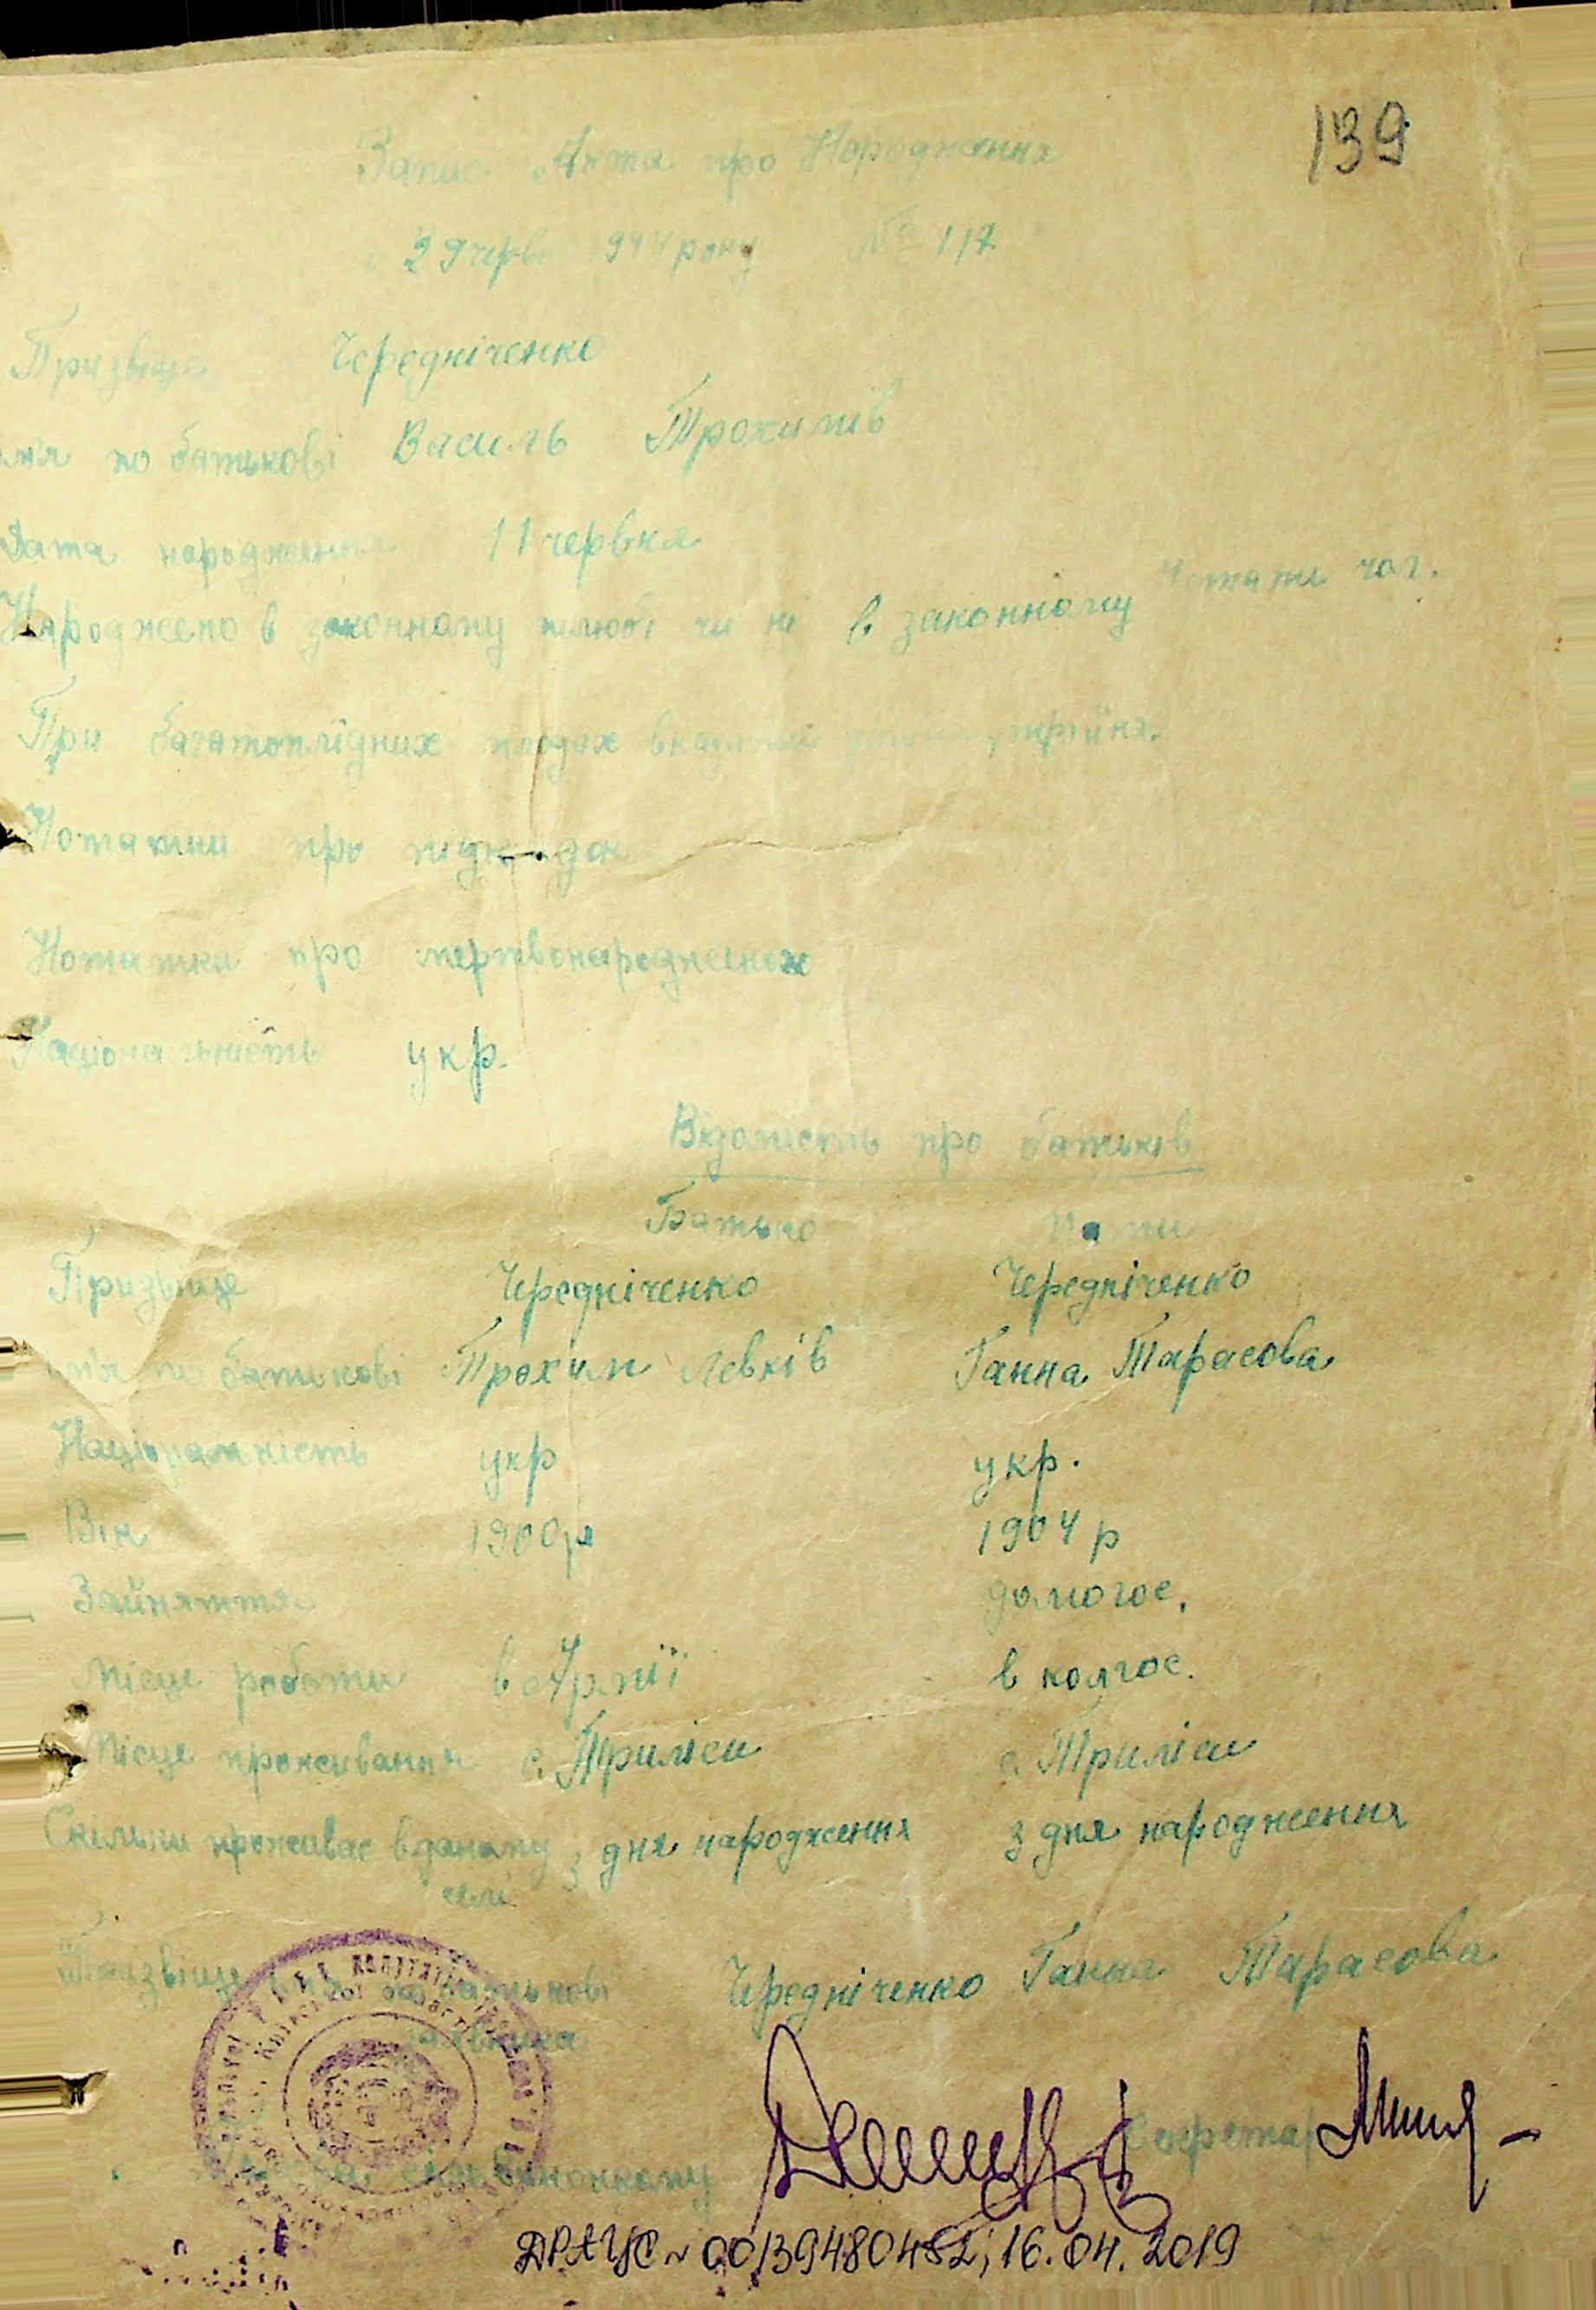 139
Запис Акта про Народження
29 червн 1944 року № 117
Призвище Чередніченко
імя по батькові Василь Трохимів
Дата народження 11 червня
Стати чол.
Народжено в законному шлюбі чи ні в законному
При багатоплідних плодах двійня, трійня.
Нотатки про підкидок
Нотатки про мертвонароджених
Національність укр.
Відомість про батьків
Батько Мати
Призвище Чередніченко Чередніченко
імя по батькові Трохим Левків Ганна Тарасова
Національність укр укр.
Вік 1900р 1904 р
Зайняття домогос.
Місце роботи в Армії в колгос.
Місце проживання с. Триліси с. Триліси
Скільки проживає в даному з дня народження з дня народження
селі
Призвище імя по батькові Чередніченко Ганна Тарасова
заявника
Голова сільвиконкому Секретар
ДРАЦС ~ 00139480452; 16.04.2019